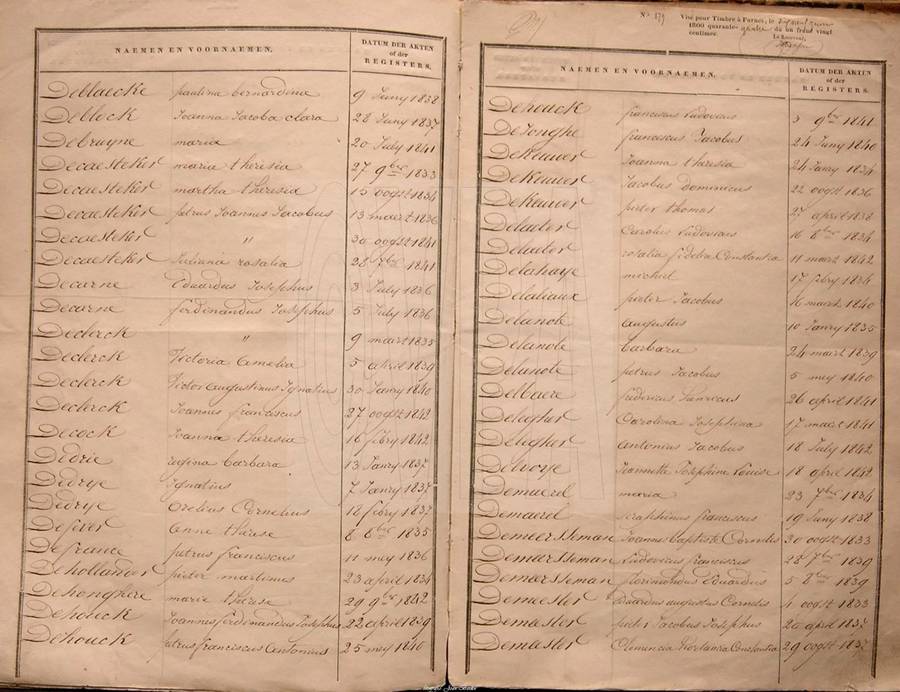 NAEMEN EN VOORNAEMEN.
DATUM DER AKTEN
of der
REGISTERS.
Deblaecke paulina bernardina 9 Juny 1838
Deblock Joanna Jacoba clara 28 Juny 1837
Debruyne maria 20 July 1841
Decaesteker maria theresia 27 9bre 1833
Decaesteker martha theresia 15 oogst 1834
Decaesteker petrus Joannes Jacobus 13 maert 1836
Decaesteker " 30 oogst 1841
Decaesteker Juliana rosalia 28 7bre 1841
Decarne Eduardus Josephus 3 July 1836
Decarne ferdinandus Josephus 5 July 1836
Declerck " 9 maert 1835
Declerck Victoria amelia 5 april 1839
Declerck Victor augustinus Ignatius 30 Janry 1840
Declerck Joannes franciscus 27 oogst 1842
Decock Joanna theresia 16 febry 1842
Dedrie regina barbara 13 Janry 1837
Dedrye Ignatius 7 Janry 1837
Dedrye Orelius Cornelius 18 febry 1837
Defever anne thérèse 8 8bre 1835
Defrance petrus franciscus 11 mey 1836
Dehollander pieter martinus 23 april 1834
Dehonghere marie thérèse 29 9bre 1842
Dehouck Joannes ferdinandus Josephus 22 april 1839
Dehouck petrus franciscus antonius 25 mey 1840
No 179
Visé pour Timbre à Furnes, le
1800 quarante- quatre du un franc vingt
centimes.
Le Receveur,
NAEMEN EN VOORNAEMEN.
DATUM DER AKTEN
of der
REGISTERS.
Dehouck franciscus Ludovicus 3 9bre 1841
DeJonghe franciscus Jacobus 24 Juny 1840
DeKeuwer Joanna theresia 24 Janry 1834
DeKeuwer Jacobus Dominicus 22 oogst 1836
DeKeuwer pieter thomas 27 april 1838
Delaeter Carolus Ludovicus 16 8bre 1834
Delaeter rosalia fidelia Constantia 11 maert 1842
Delahaye michiel 17 febry 1834
Delaliaux pieter Jacobus 16 maert 1840
Delanote augustus 10 Janry 1835
Delanote barbara 24 maert 1839
Delanote petrus Jacobus 5 mey 1840
Delbaere 26 april 1841
Delegher Carolina Josephina 17 maert 1841
Delegher antonius Jacobus 18 July 1842
Delvoye Jeannette Josephine Louise 18 april 1842
Demaerel maria 23 7bre 1834
Demaerel seraphinus franciscus 19 Juny 1838
Demeersseman Joannes baptiste Cornelis 30 oogst 1833
Demeersseman Ludovicus franciscus 28 7bre 1839
Demeersseman florimondus Eduardus 5 8bre 1839
Demeester Eduardus augustus Cornelis 4 oogst 1833
Demeester pieter Jacobus Josephus 20 april 1837
Demeester Clemencia hortantia Constantia 29 oogst 1837